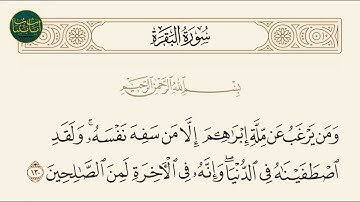 سُورَةُ البَقَرَةِ
بِسْمِ اللَّهِ الرَّحْمَٰنِ الرَّحِيمِ
وَمَن يَرْغَبُ عَن مِّلَّةِ إِبْرَٰهِـۧمَ إِلَّا مَن سَفِهَ نَفْسَهُۥ ۚ وَلَقَدِ
ٱصْطَفَيْنَٰهُ فِى ٱلدُّنْيَا ۖ وَإِنَّهُۥ فِى ٱلْأَخِرَةِ لَمِنَ ٱلصَّٰلِحِينَ ١٣٠